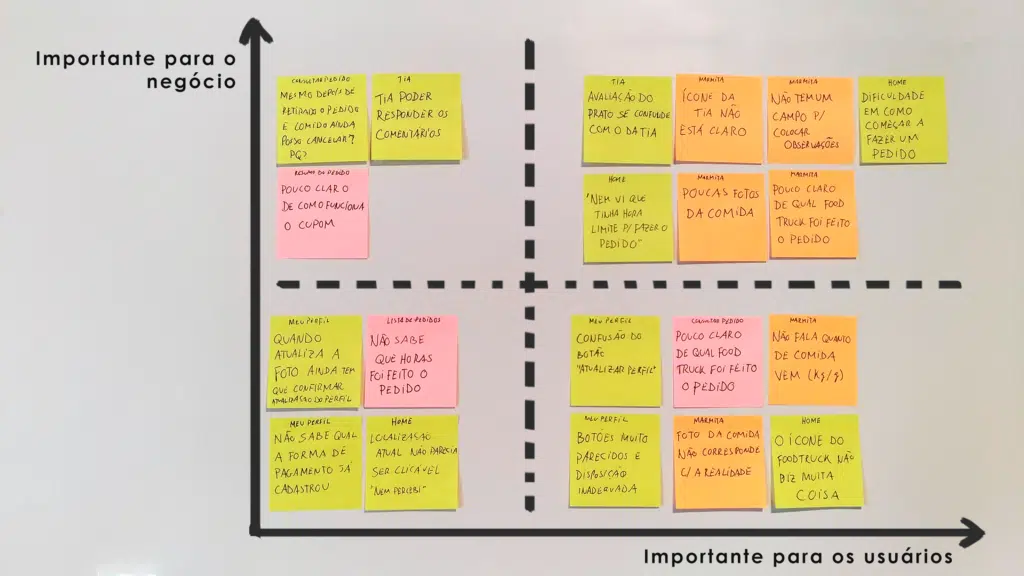 Importante para o
negócio
CANCELAR PEDIDO
MESMO DEPOIS DE
RETIRADO O PEDIDO
E COMIDO AINDA
POSSO CANCELAR?
PQ?
TIA
TIA PODER
RESPONDER OS
COMENTÁRIOS
RESUMO DO PEDIDO
POUCO CLARO
DE COMO FUNCIONA
O CUPOM
TIA
AVALIAÇÃO DO
PRATO SE CONFUNDE
COM O DA TIA
MARMITA
ÍCONE DA
TIA NÃO
ESTÁ CLARO
MARMITA
NÃO TEM UM
CAMPO P/
COLOCAR
OBSERVAÇÕES
HOME
DIFICULDADE
EM COMO
COMEÇAR A
FAZER UM
PEDIDO
HOME
"NEM VI QUE
TINHA HORA
LIMITE P/ FAZER O
PEDIDO"
MARMITA
POUCAS FOTOS
DA COMIDA
MARMITA
POUCO CLARO
DE QUAL FOOD
TRUCK FOI FEITO
O PEDIDO
MEU PERFIL
QUANDO
ATUALIZA A
FOTO AINDA TEM
QUE CONFIRMAR
ATUALIZAÇÃO DO PERFIL
LISTA DE PEDIDOS
NÃO SABE
QUE HORAS
FOI FEITO O
PEDIDO
MEU PERFIL
NÃO SABE QUAL
A FORMA DE
PAGAMENTO JÁ
CADASTROU
HOME
LOCALIZAÇÃO
ATUAL NÃO PARECIA
SER CLICÁVEL
"NEM PERCEBI"
MEU PERFIL
CONFUSÃO DO
BOTÃO
"ATUALIZAR PERFIL"
POUCO CLARO
DE QUAL FOOD
TRUCK FOI FEITO
O PEDIDO
MARMITA
NÃO FALA QUANTO
DE COMIDA
VEM (Kg/g)
MEU PERFIL
BOTÕES MUITO
PARECIDOS E
DISPOSIÇÃO
INADEQUADA
MARMITA
FOTO DA COMIDA
NÃO CORRESPONDE
C/ A REALIDADE
HOME
O ÍCONE DO
FOODTRUCK NÃO
DIZ MUITA
COISA
Importante para os usuários